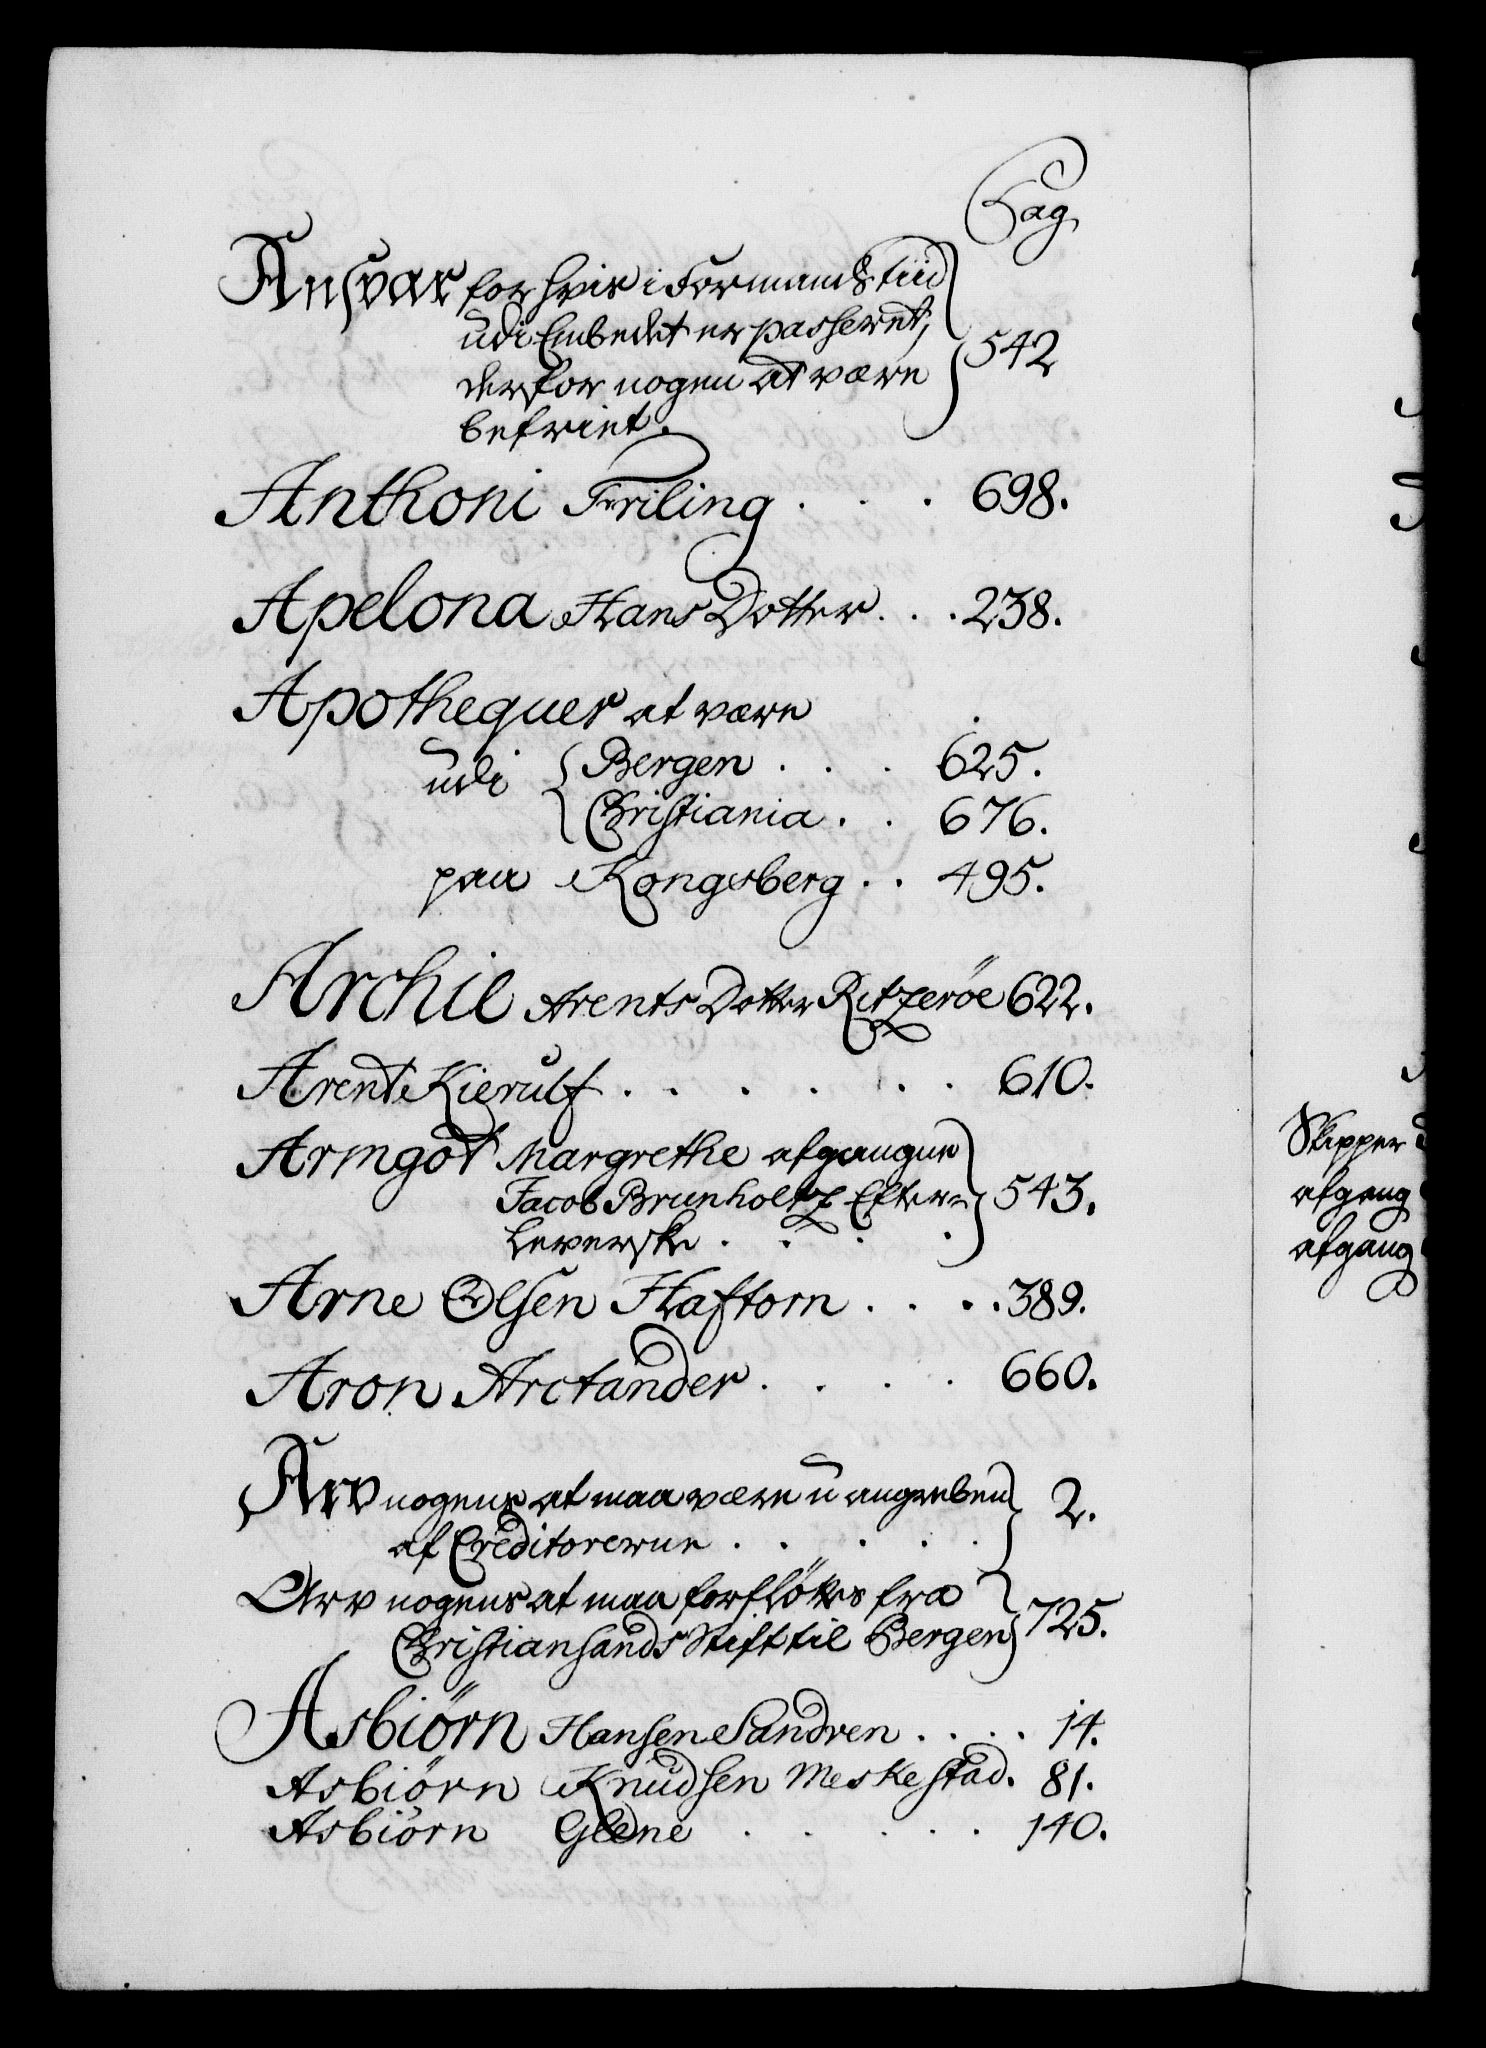 Pag
Ansvar for hvis i Formands tiid
udi Embedet er passeret,
derfor nogen at være
befriet. 542
Anthoni Friling . . . 698.
Apelona Hans Dotter . . . 238.
Apothequer at være
udi Bergen . . . 625.
Christiania . . 676.
paa Kongsberg . . 495.
Archil Arents Dotter Ritzeröe 622.
Arent Kierulf . . . . . . 610.
Armgot Margrethe afgangne
Jacob Brunholtz Efter-
leverske . . . . 543.
Arne Olsen Haftorn . . . . 389.
Aron Arctander . . . . 660.
Arv nogens at maa være u angreben
af Creditorerne . . . . . 2.
Arv nogens at maa forfløttes fra
Christiansands Stift til Bergen 725.
Asbiörn Hansen Sandven . . . . 14.
Asbiörn Knudsen Meskestad. 81.
Asbiörn Glene . . . . . 140.
Skipper
afgang
afgang